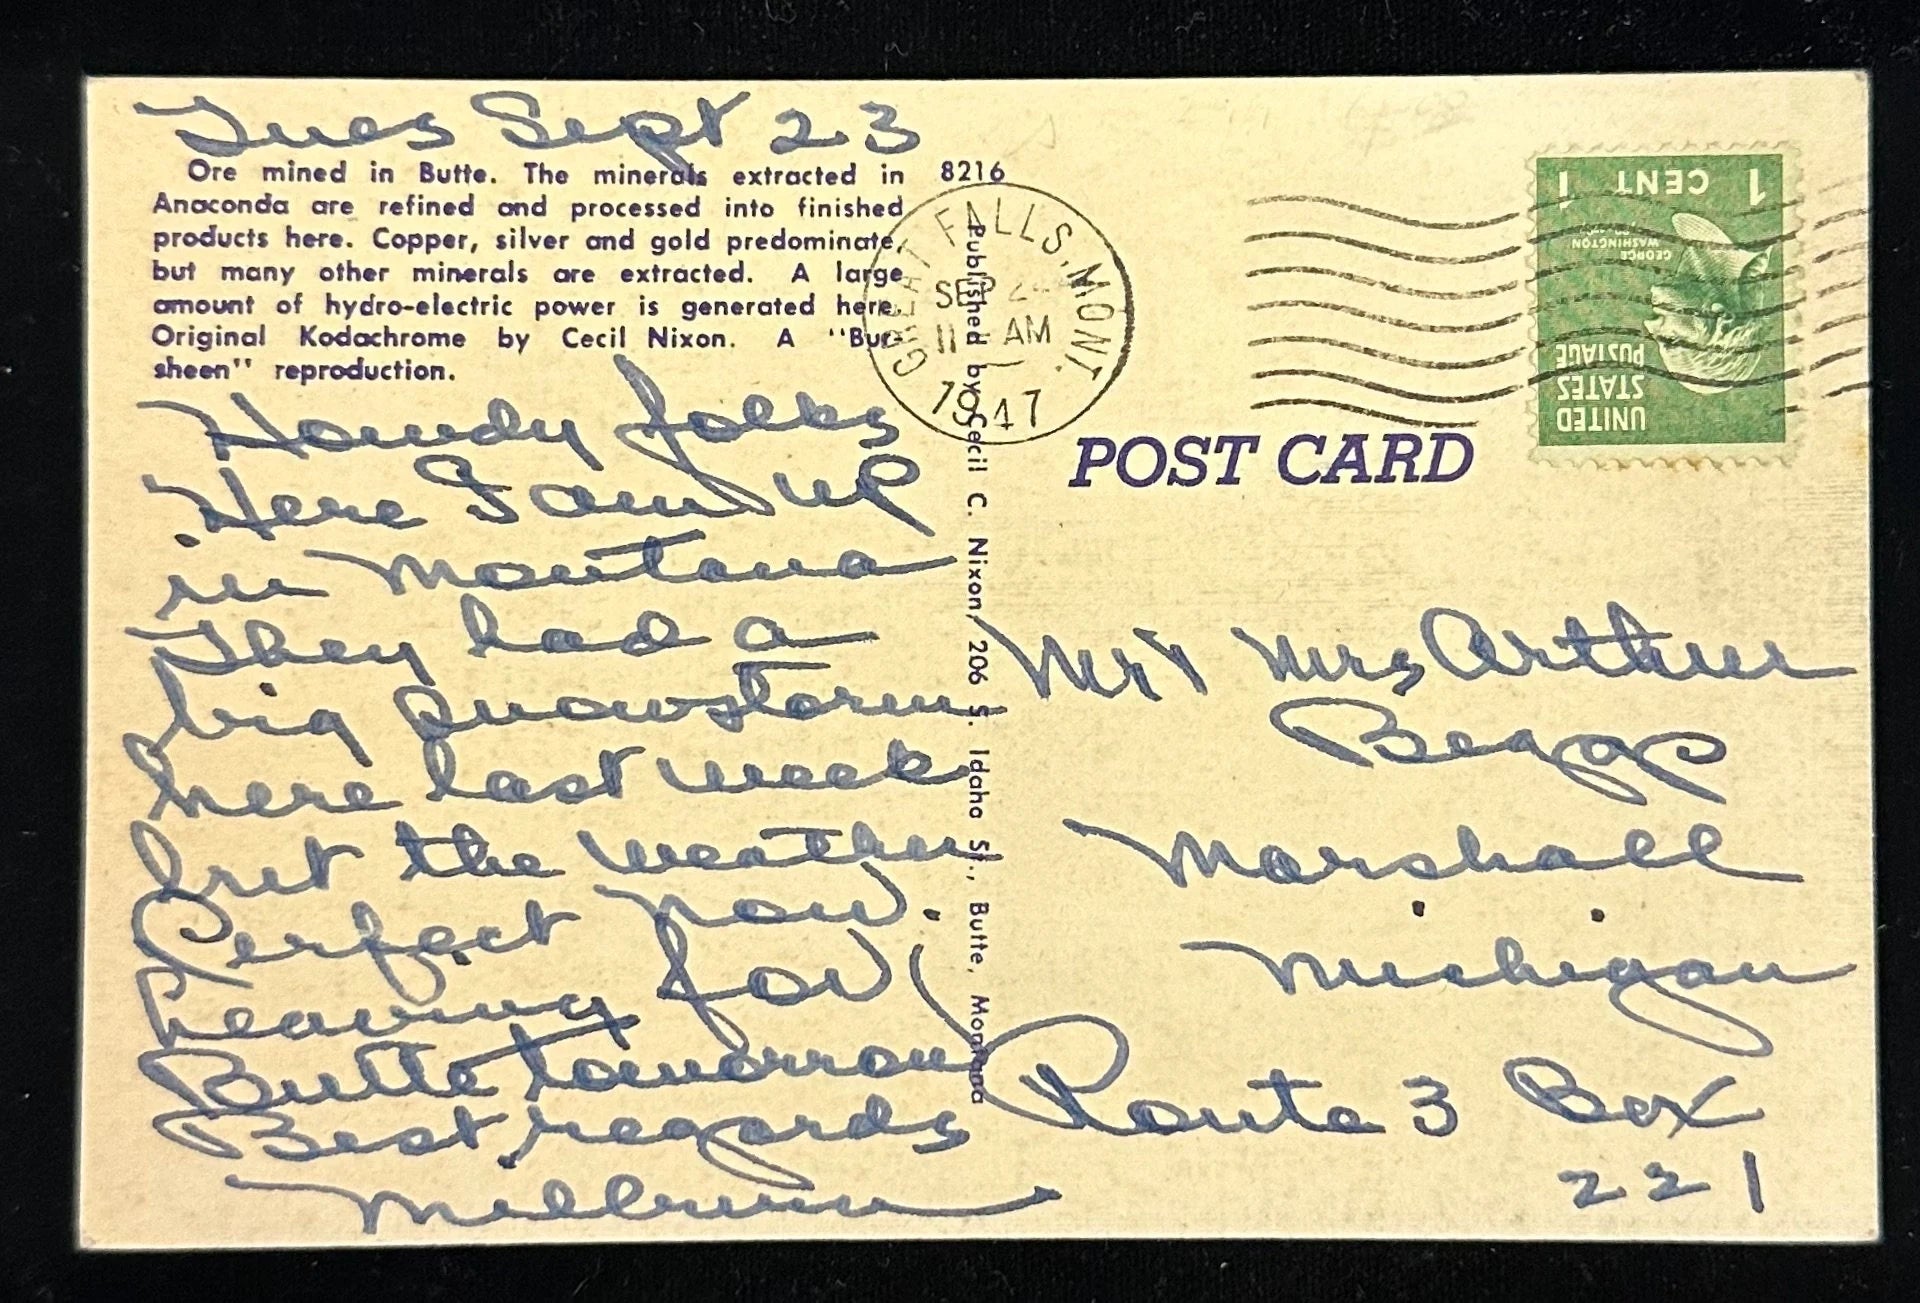 Tues Sept 23
Ore mined in Butte. The minerals extracted in
Anaconda are refined and processed into finished
products here. Copper, silver and gold predominate,
but many other minerals are extracted. A large
amount of hydro-electric power is generated here.
Original Kodachrome by Cecil Nixon. A "Bur-
sheen" reproduction.
Howdy folks
Here I am up
in Montana
They had a
big snowstorm
here last week
but the weather
Perfect now.
Leaving for
Butte tomorrow
Best regards
8216
Published by Cecil C. Nixon, 206 S. Idaho St., Butte, Montana
GREAT FALLS, MONT.
SEP 24
11 AM
1947
1 CENT 1
GEORGE
WASHINGTON
UNITED
STATES
POSTAGE
POST CARD
Mr & Mrs Arthur
Begap
Marshall
Michigan
Route 3 Box
221